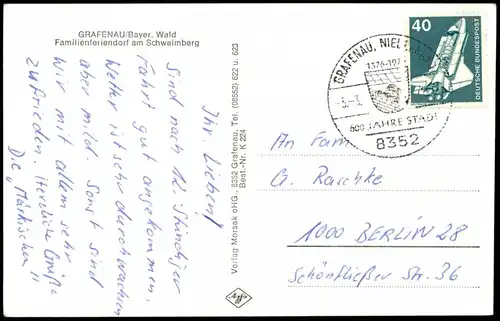 GRAFENAU/Bayer. Wald
Familienferiendorf am Schwaimberg
Ihr Lieben!
Sind nach 12 Stündiger
Fahrt gut angekommen.
Wetter ist sehr durchwachsen
aber mild. Sonst sind
wir mit allem sehr
zufrieden. Herzliche Grüße
Die "Märkischen"
Verlag Morsak oHG., 8352 Grafenau, Tel. (08552) 622 u. 623
Best.-Nr. K 224
Agfa
GRAFENAU, NIE
1376-197
600 JAHRE STADT
8352
40
DEUTSCHE BUNDESPOST
An Fam.
G. Raschke
1000 BERLIN 28
Schönfließer Str. 36